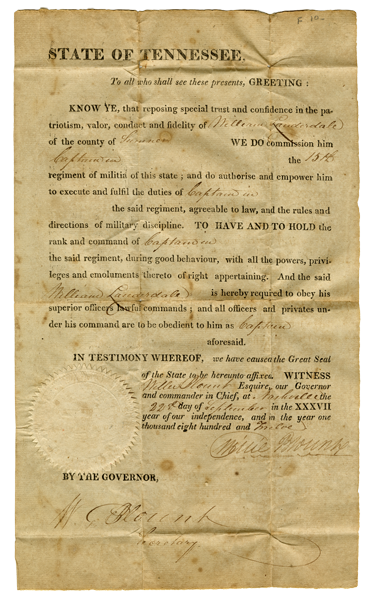 F 10
STATE OF TENNESSEE.
To all who shall see these presents, GREETING:
KNOW YE, that reposing special trust and confidence in the pa-
triotism, valor, conduct and fidelity of William Lauderdale
of the county of Sumner WE DO commission him
Captain in the 15th
regiment of militia of this state; and do authorise and empower him
to execute and fulfil the duties of Captain in
the said regiment, agreeable to law, and the rules and
directions of military discipline. TO HAVE AND TO HOLD the
rank and command of Captain in
the said regiment, during good behaviour, with all the powers, privi-
leges and emoluments thereto of right appertaining. And the said
William Lauderdale is hereby required to obey his
superior officers lawful commands; and all officers and privates un-
der his command are to be obedient to him as Captain
aforesaid.
IN TESTIMONY WHEREOF, we have caused the Great Seal
of the State to be hereunto affixed. WITNESS
Willie Blount Esquire, our Governor
and commander in Chief, at Nashville the
22nd day of September in the XXXVII
year of our independence, and in the year one
thousand eight hundred and Twelve
Willie Blount
BY THE GOVERNOR,
W. G. Blount
Secretary